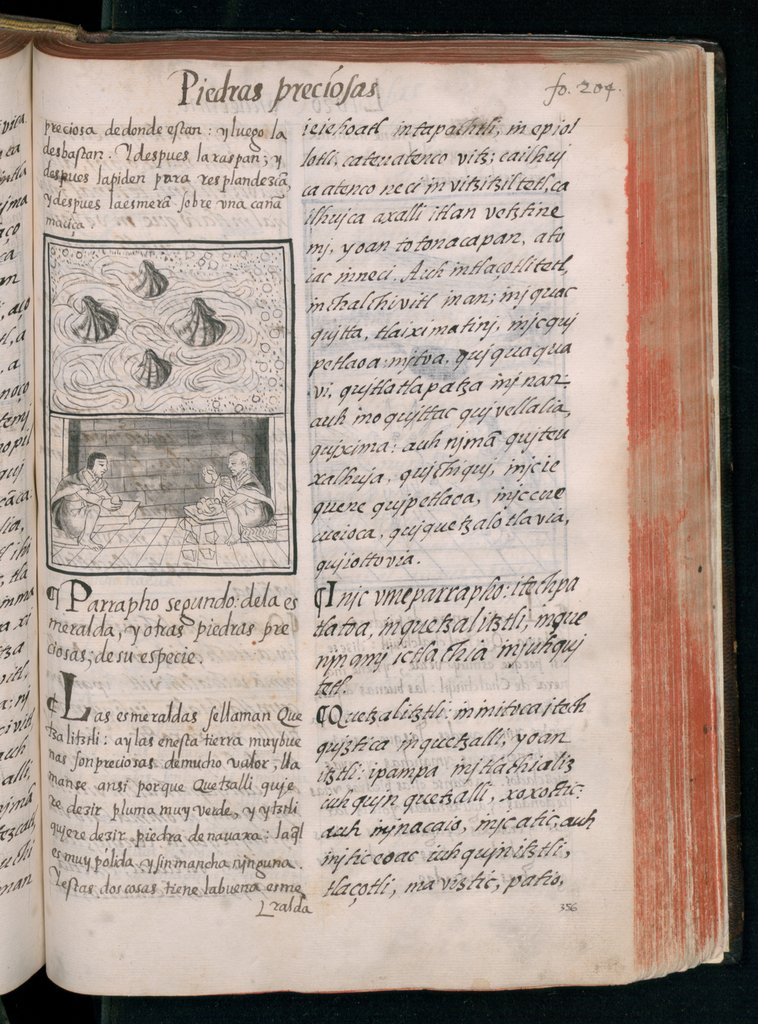 Piedras preciosas
fo. 204.
preciosa, de donde estan: y luego la
desbastan. Y despues la raspan; y
despues la piden para resplandezca,
y despues la esmerã sobre vna caña
maciça
¶ Parrapho segundo: de la es
meralda, y otras piedras pre
ciosas; de su especie.
¶ Las esmeraldas se llaman Que
tzalitztli: ay las en esta tierra muy bue
nas son preciosas de mucho valor, lla
manse ansi porque Quetzalli quje
re dezir pluma muy verde, y ytztli
qujere dezir piedra de nauaxa: la ql̃
es muy polida, y sin mancha njnguna.
Y estas dos cosas tiene la buena esme
ralda
in tapachtli, in epiol
lotli, ca ten atenco vitz; ca ilhuj
ca atenco neci in vitzitziltetl, ca
ilhujca axalli itlan vetztine
mj, yoan totonacapan, ato
iac in neci. Auh in tlaçotli tetl,
in chalchivitl in an; inj quac
qujtta, tlaiximatinj, injc quj
petlaoa: mitoa, qujquaqua
vi, qujtlatlapatza inj nan:
auh in oqujttac qujvellalia,
qujxima: auh njmã qujteu
xalhuja, qujchiquj, injc ie
quene qujpetlaoa, injc cue
cueioca, qujquetzalotlavia,
qujiottovia.
¶ Injc vme parrapho: itechpa
tlatoa, in quetzalitztli, in que
njn qnj ic tlachia in juhquj
tetl.
¶ Quetzalitztli: inin itoca itech
qujztica in quetzalli, yoan
itztli: ipampa inj tlachializ
iuhqujn quetzalli, xoxoctic:
auh inj nacaio, injc atic, auh
injc tiçeoac iuhqujn itztli,
tlaçotli, maviztic, patio,
356